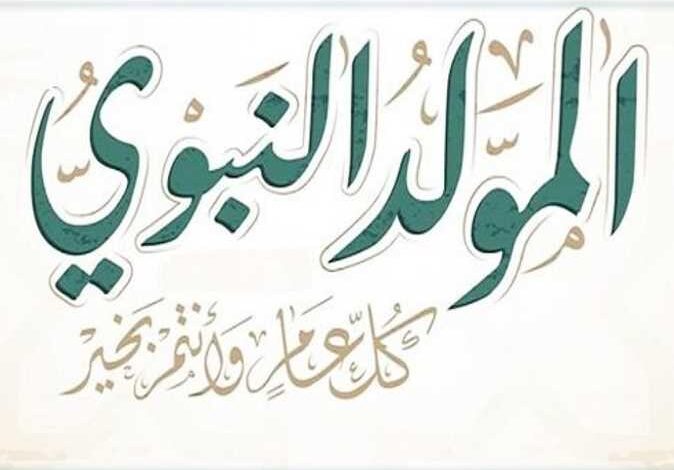 المولد النبوي
كُلُّ عَامٍ وَأَنتُمْ بِخَيْرٍ